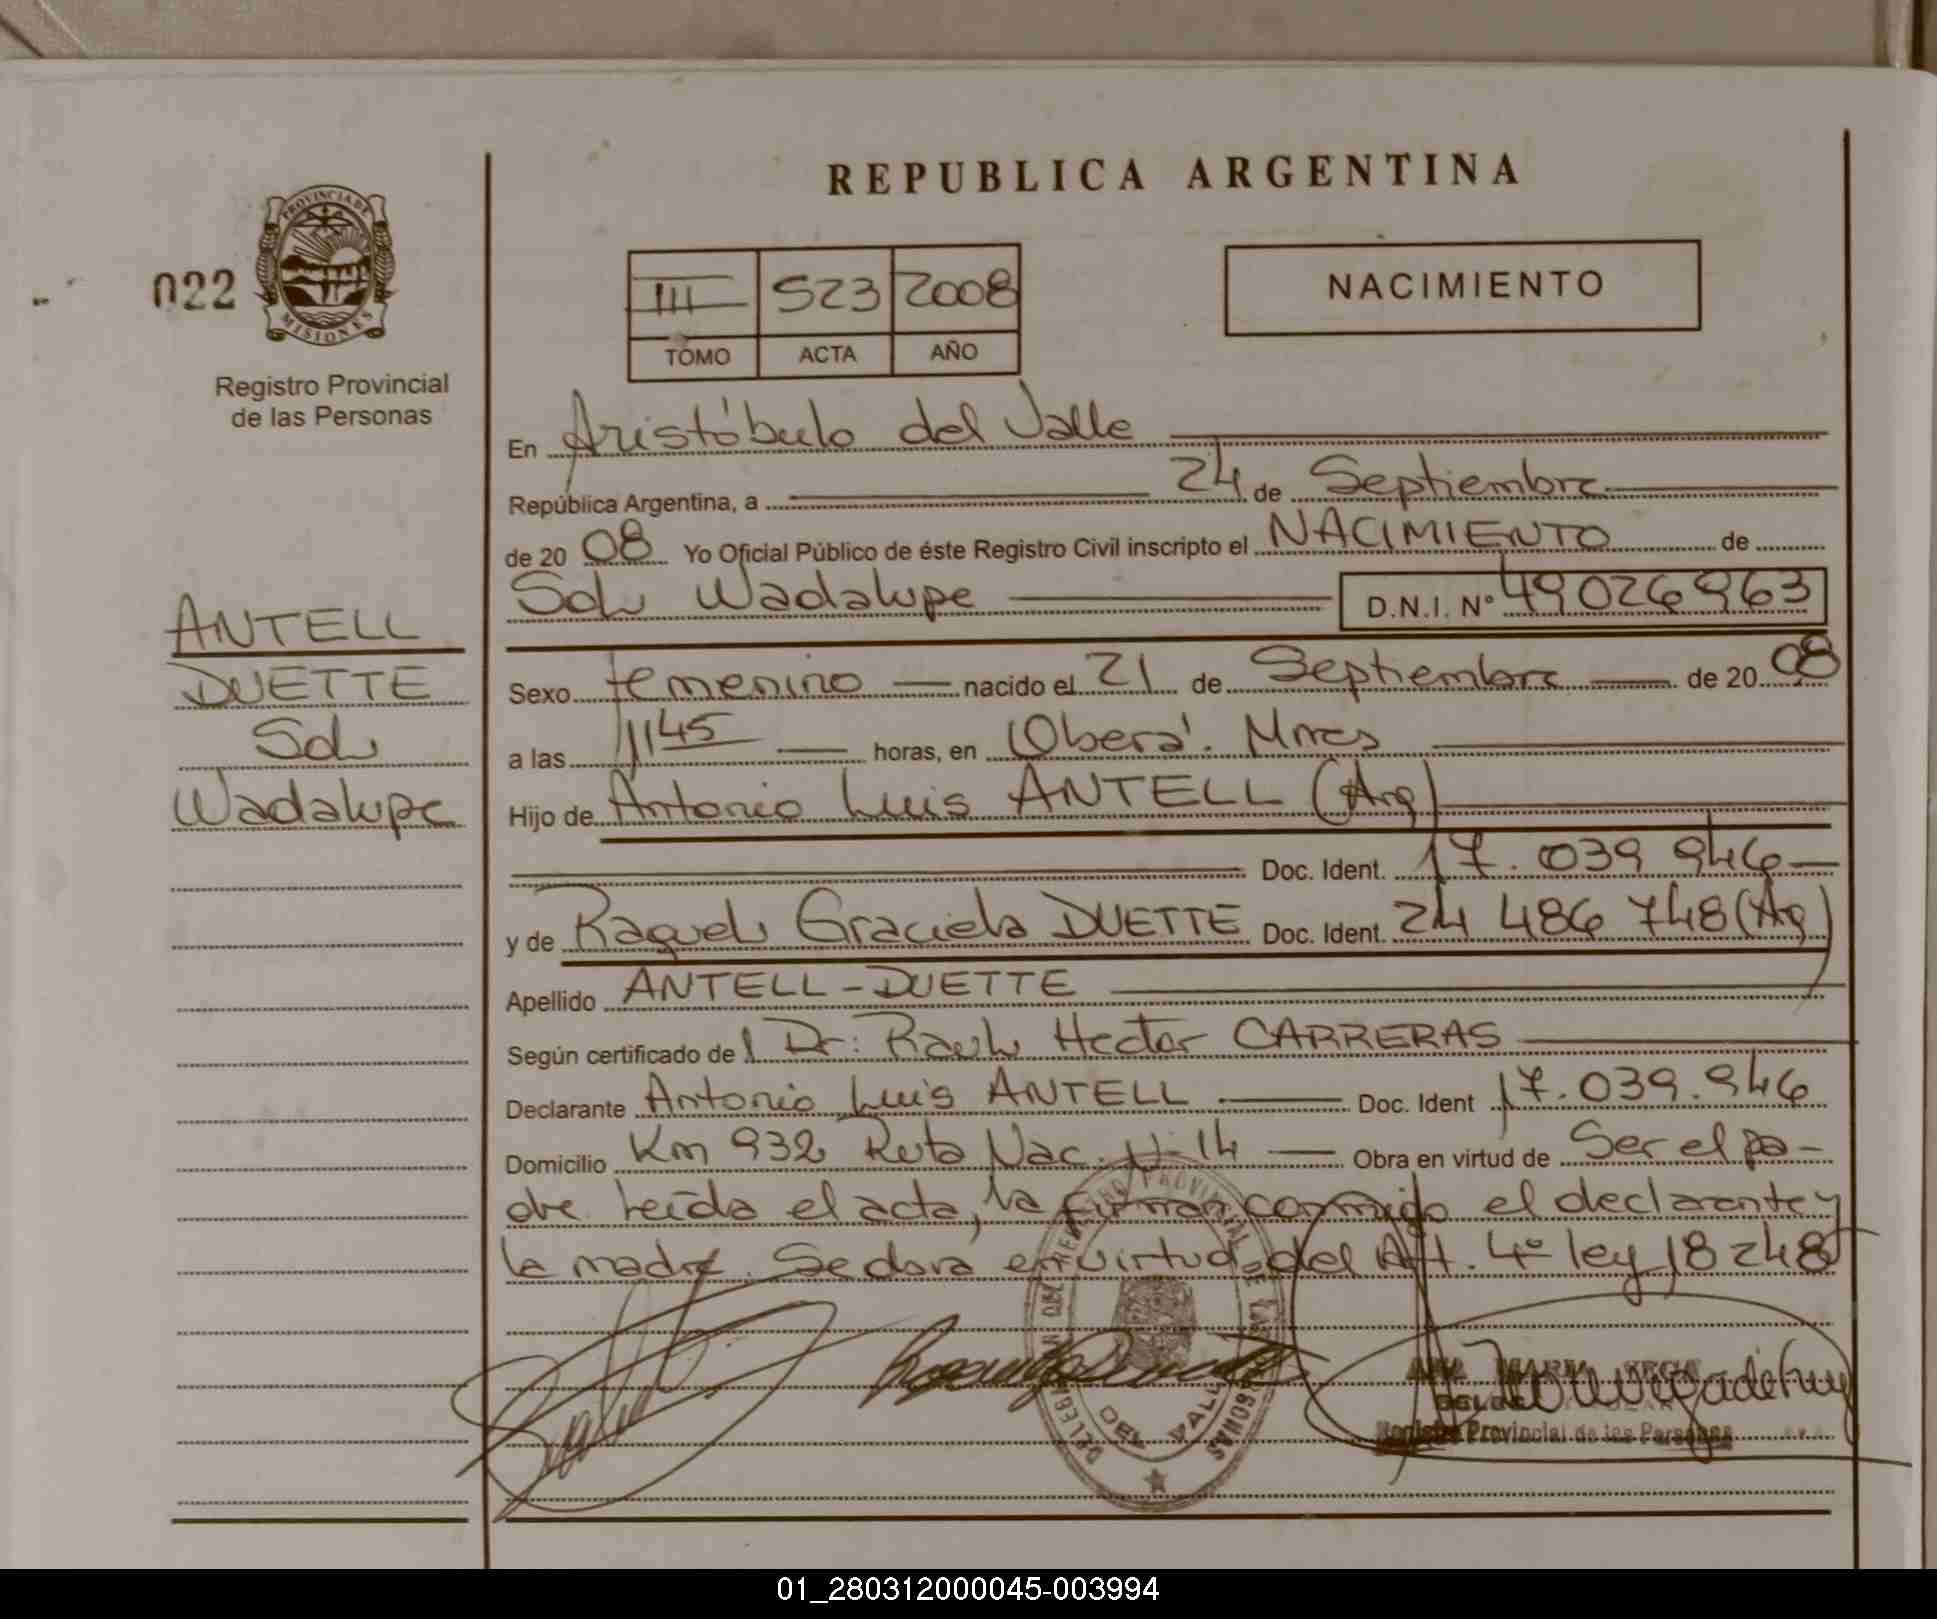 REPUBLICA ARGENTINA
022
PROVINCIA DE
MISIONES
Registro Provincial
de las Personas
III 523 2008
TOMO ACTA AÑO
NACIMIENTO
ANTELL
DUETTE
Sol
Wadalupe
En Aristóbulo del Valle
República Argentina, a 24 de Septiembre
de 20 08 Yo Oficial Público de éste Registro Civil inscripto el NACIMIENTO de
Sol Wadalupe D.N.I. Nº 49026963
Sexo femenino nacido el 21 de Septiembre de 20 08
a las 1145 horas, en Oberá. Mnes
Hijo de Antonio Luis ANTELL (Arg)
Doc. Ident. 17.039 946
y de Raquel Graciela DUETTE Doc. Ident. 24 486 748 (Arg)
Apellido ANTELL-DUETTE
Según certificado del Dr: Raul Hector CARRERAS
Declarante Antonio Luis ANTELL Doc. Ident 17.039.946
Domicilio Km 932 Ruta Nac. Nº 14 Obra en virtud de Ser el pa-
dre leída el acta, la firman conmigo el declarante y
la madre. Se dara en virtud del Art. 4º ley 18248
DEL VALLE
Registro Provincial de las Personas
01_280312000045-003994